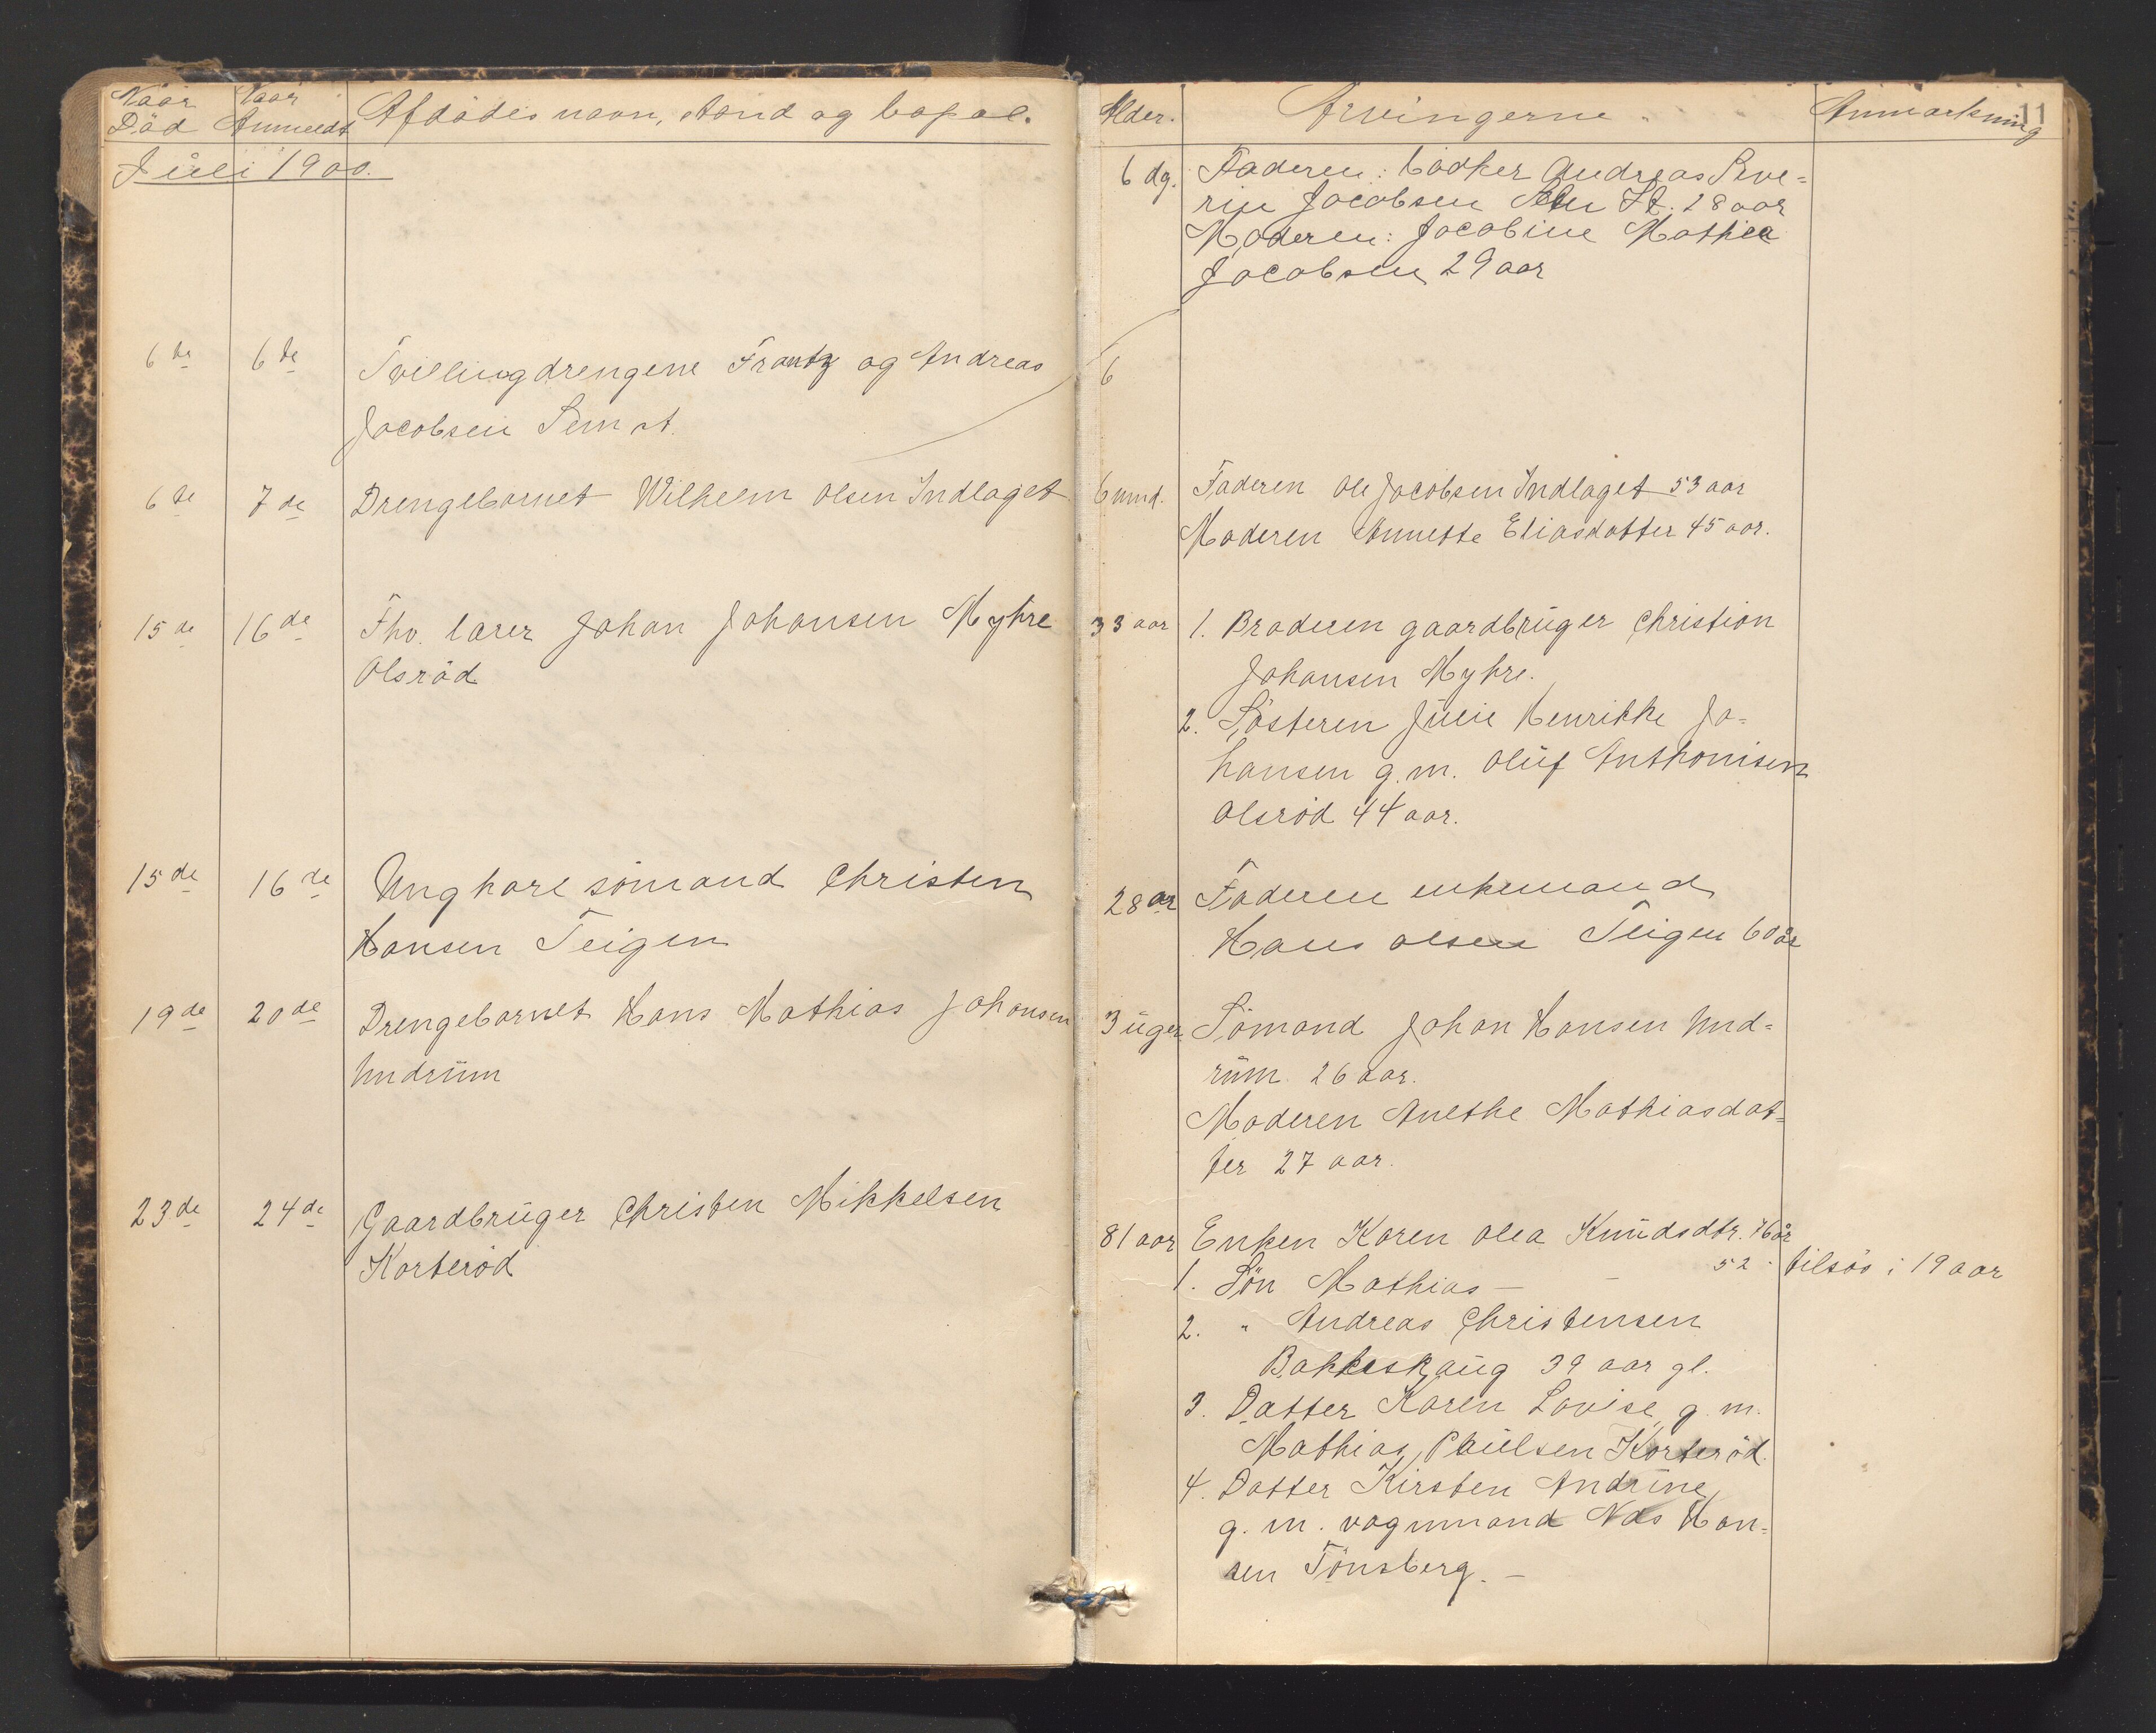 Naar
Död
Naar
Anmeldt
Afdödes navn, stand og bopæl.
Juli 1900.
6te
6te
Tvillingdrengene Frantz og Andreas
Jacobsen Sem st.
6te
7de
Drengebarnet Wilhelm Olsen Indlaget
15de
16de
Fhv. lærer Johan Johansen Myhre
Olsröd
15de
16de
Ungkarl sömand Christen
Hansen Teigen
19de
20de
Drengebarnet Hans Mathias Johansen
Undrum
23de
24de
Gaardbruger Christen Mikkelsen
Korteröd
Alder.
Arvingerne.
Anmærkning
11
6 dg.
Faderen: Bödker Andreas Seve=
rin Jacobsen Sem St. 28 aar
Moderen: Jacobine Mathea
Jacobsen 29 aar
6
6 mnd.
Faderen Ole Jacobsen Indlaget 53 aar
Moderen Annette Eliasdatter 45 aar.
33 aar
1. Broderen gaardbruger Christian
Johansen Myhre.
2. Sösteren Julie Henrikke Jo=
hansen g.m. Oluf Anthonisen
Olsröd 44 aar.
28 aar
Faderen enkemand
Hans Olsen Teigen 60 år
3 uger
Sömand Johan Hansen Und=
rum. 26 aar.
Moderen Anethe Mathiasdat=
ter 27 aar.
81 aar
Enken Karen Olea Knudsdtr. 76 år
1. Sön Mathias — — 52 - tilsös i 19 aar
2. " Andreas Christensen
Bakkeskaug 39 aar gl.
3. Datter Karen Lovise g.m.
Mathias Paulsen Korteröd.
4. Datter Kirsten Andrine
g.m. vognmand Nils Han=
sen Tönsberg. —